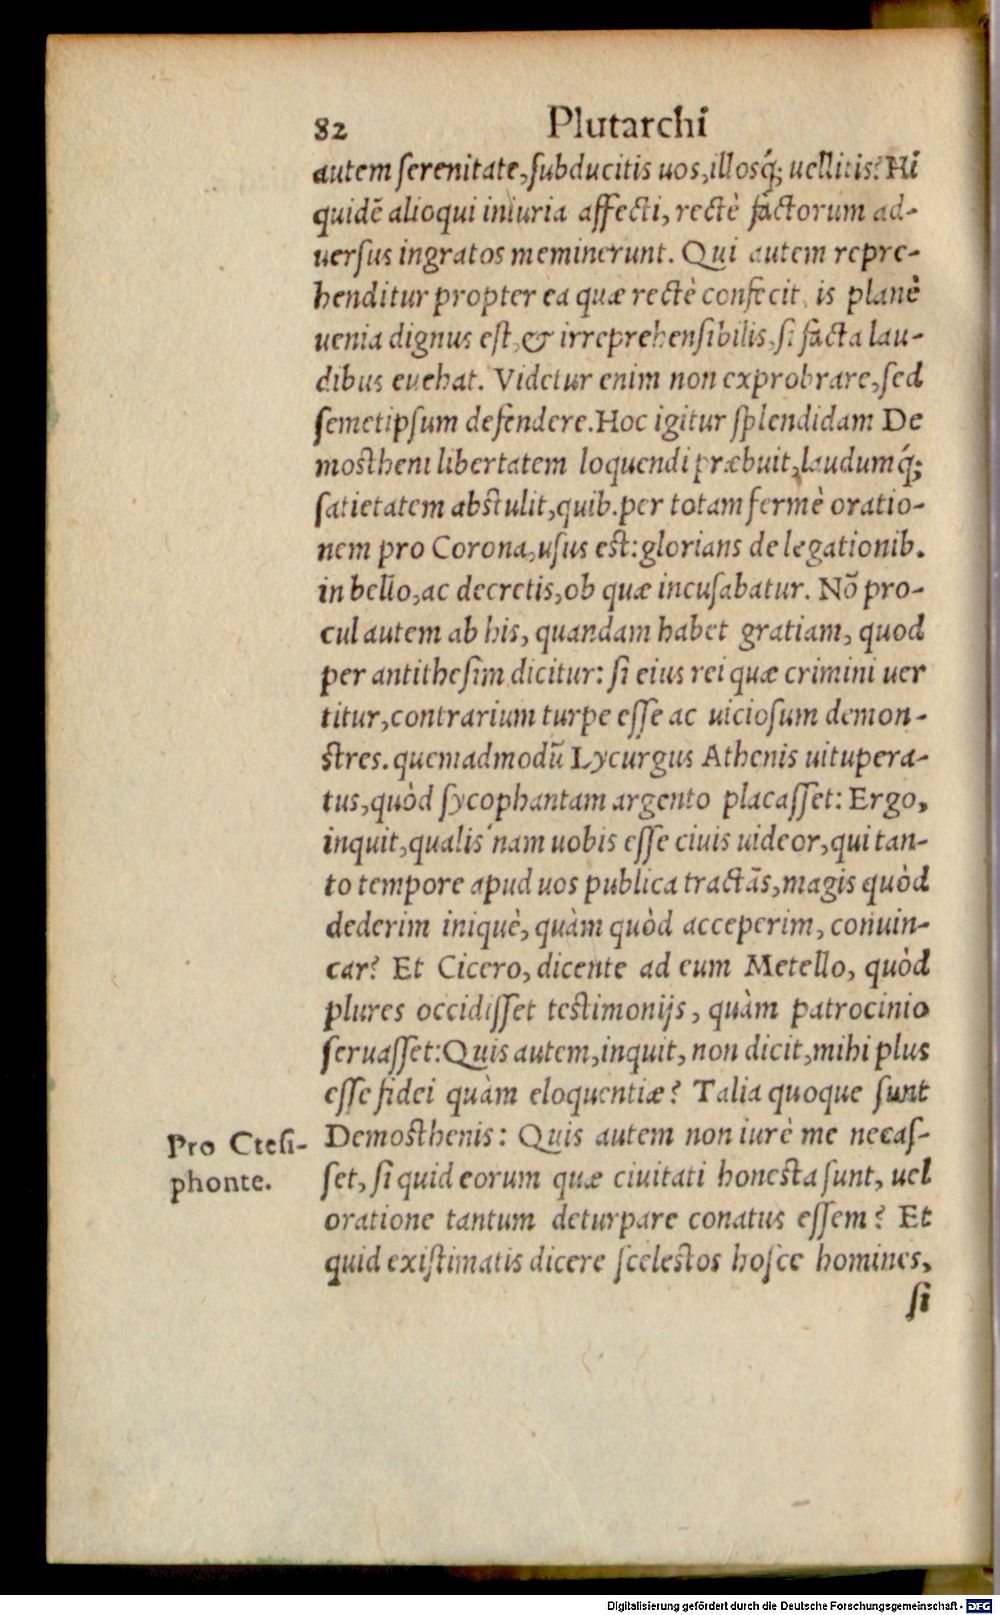 82 Plutarchi
autem serenitate,subducitis uos,illosq́; uellitis? Hi
quidē alioqui iniuria affecti, rectè factorum ad-
uersus ingratos meminerunt. Qui autem repre-
henditur propter ea quæ rectè confecit, is planè
uenia dignus est,& irreprehensibilis,si facta lau-
dibus euehat. Videtur enim non exprobrare,sed
semetipsum defendere.Hoc igitur splendidam De
mostheni libertatem loquendi præbuit,laudumq́;
satietatem abstulit,quib.per totam fermè oratio-
nem pro Corona,usus est:glorians de legationib.
in bello,ac decretis,ob quæ incusabatur. Nō pro-
cul autem ab his, quandam habet gratiam, quod
per antithesim dicitur: si eius rei quæ crimini uer
titur,contrarium turpe esse ac uiciosum demon-
stres.quemadmodū Lycurgus Athenis uitupera-
tus,quòd sycophantam argento placasset: Ergo,
inquit,qualis nam uobis esse ciuis uideor,qui tan-
to tempore apud uos publica tractās,magis quòd
dederim iniquè, quàm quòd acceperim, conuin-
car? Et Cicero, dicente ad eum Metello, quòd
plures occidisset testimonijs, quàm patrocinio
seruasset:Quis autem,inquit, non dicit,mihi plus
esse fidei quàm eloquentiæ? Talia quoque sunt
Pro Ctesi- Demosthenis: Quis autem non iurè me necas-
phonte. set, si quid eorum quæ ciuitati honesta sunt, uel
oratione tantum deturpare conatus essem? Et
quid existimatis dicere scelestos hosce homines,
si
Digitalisierung gefördert durch die Deutsche Forschungsgemeinschaft - DFG